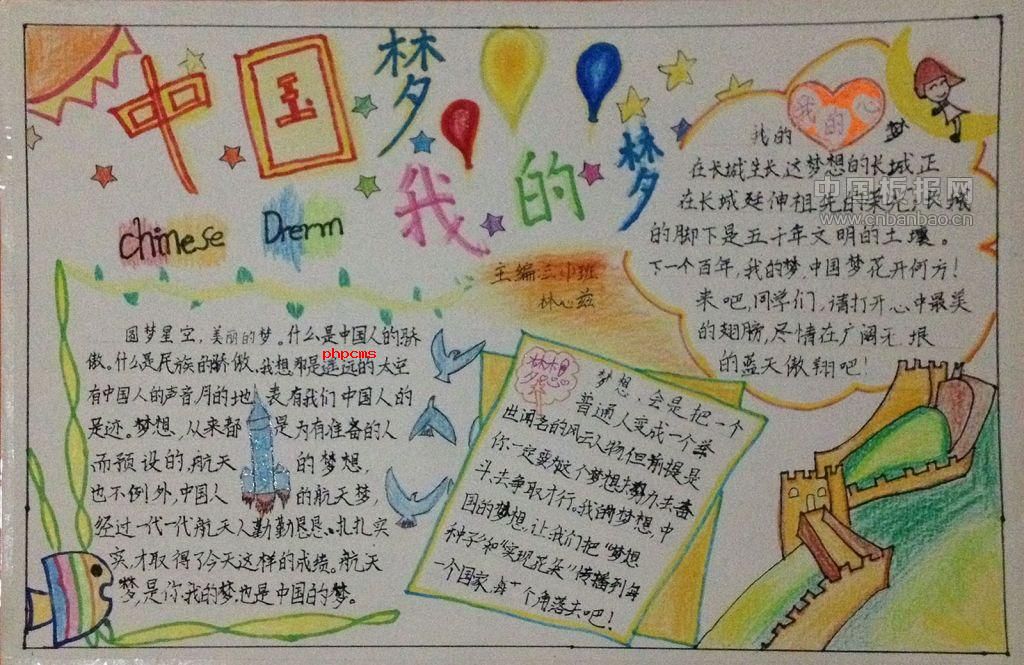 中国梦
我的梦
chinese Drerm
主编三(1)班
林心兹
圆梦星空，美丽的梦。什么是中国人的骄
傲。什么是民族的骄傲，我想那是遥远的太空
phpcms
有中国人的声音，月的地表有我们中国人的
足迹。梦想，从来都是为有准备的人
而预设的，航天的梦想，
也不例外，中国人的航天梦，
经过一代一代航天人勤勤恳恳、扎扎实
实，才取得了今天这样的成绩。航天
梦，是你我的梦，也是中国的梦。
梦想，会是把一个
普通人变成一个举
世闻名的风云人物，但前提是
你一定要做这个梦想，努力去奋
斗、去争取才行。我的梦想，中
国的梦想，让我们把“梦想
种子”和“实现花朵”传播到每
一个国家，每一个角落去吧！
我的心
我的梦
在长城生长，这梦想的长城，正
在长城延伸，祖先的荣光，长城
的脚下是五千年文明的土壤。
下一个百年，我的梦，中国梦花开何方！
来吧，同学们，请打开心中最美
的翅膀，尽情在广阔无垠
的蓝天傲翔吧！
中国板报网
www.cnbanbao.cn